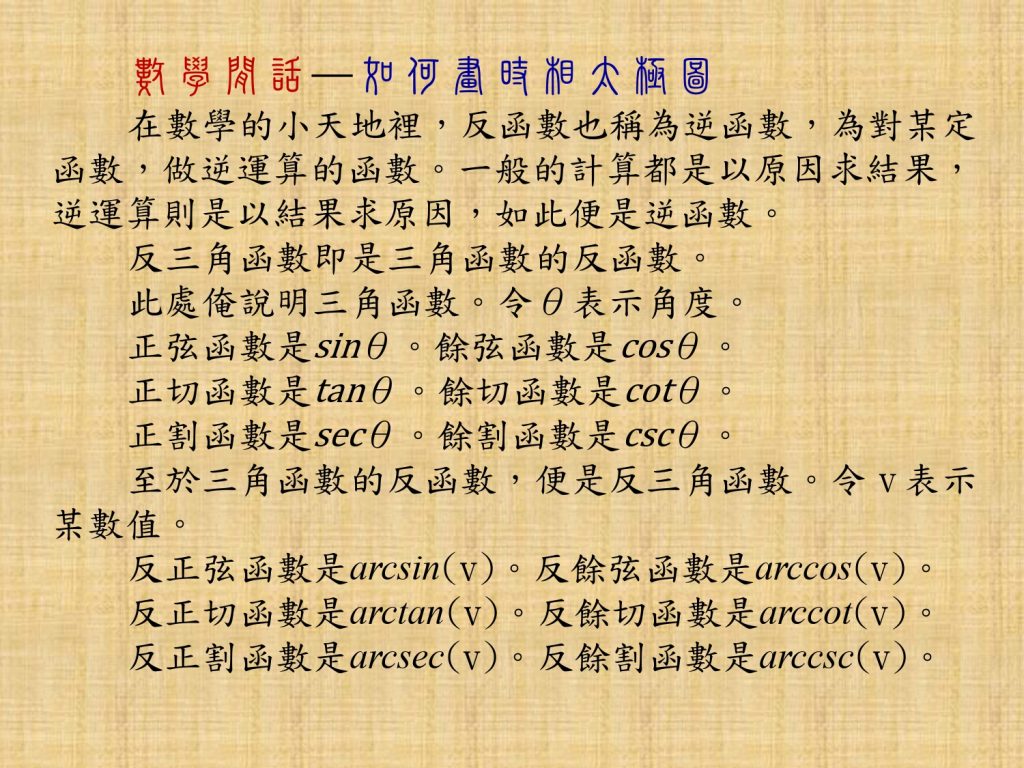 數學閒話—如何畫時相太極圖
在數學的小天地裡，反函數也稱為逆函數，為對某定
函數，做逆運算的函數。一般的計算都是以原因求結果，
逆運算則是以結果求原因，如此便是逆函數。
反三角函數即是三角函數的反函數。
此處俺說明三角函數。令θ表示角度。
正弦函數是sinθ。餘弦函數是cosθ。
正切函數是tanθ。餘切函數是cotθ。
正割函數是secθ。餘割函數是cscθ。
至於三角函數的反函數，便是反三角函數。令 v 表示
某數值。
反正弦函數是arcsin(v)。反餘弦函數是arccos(v)。
反正切函數是arctan(v)。反餘切函數是arccot(v)。
反正割函數是arcsec(v)。反餘割函數是arccsc(v)。